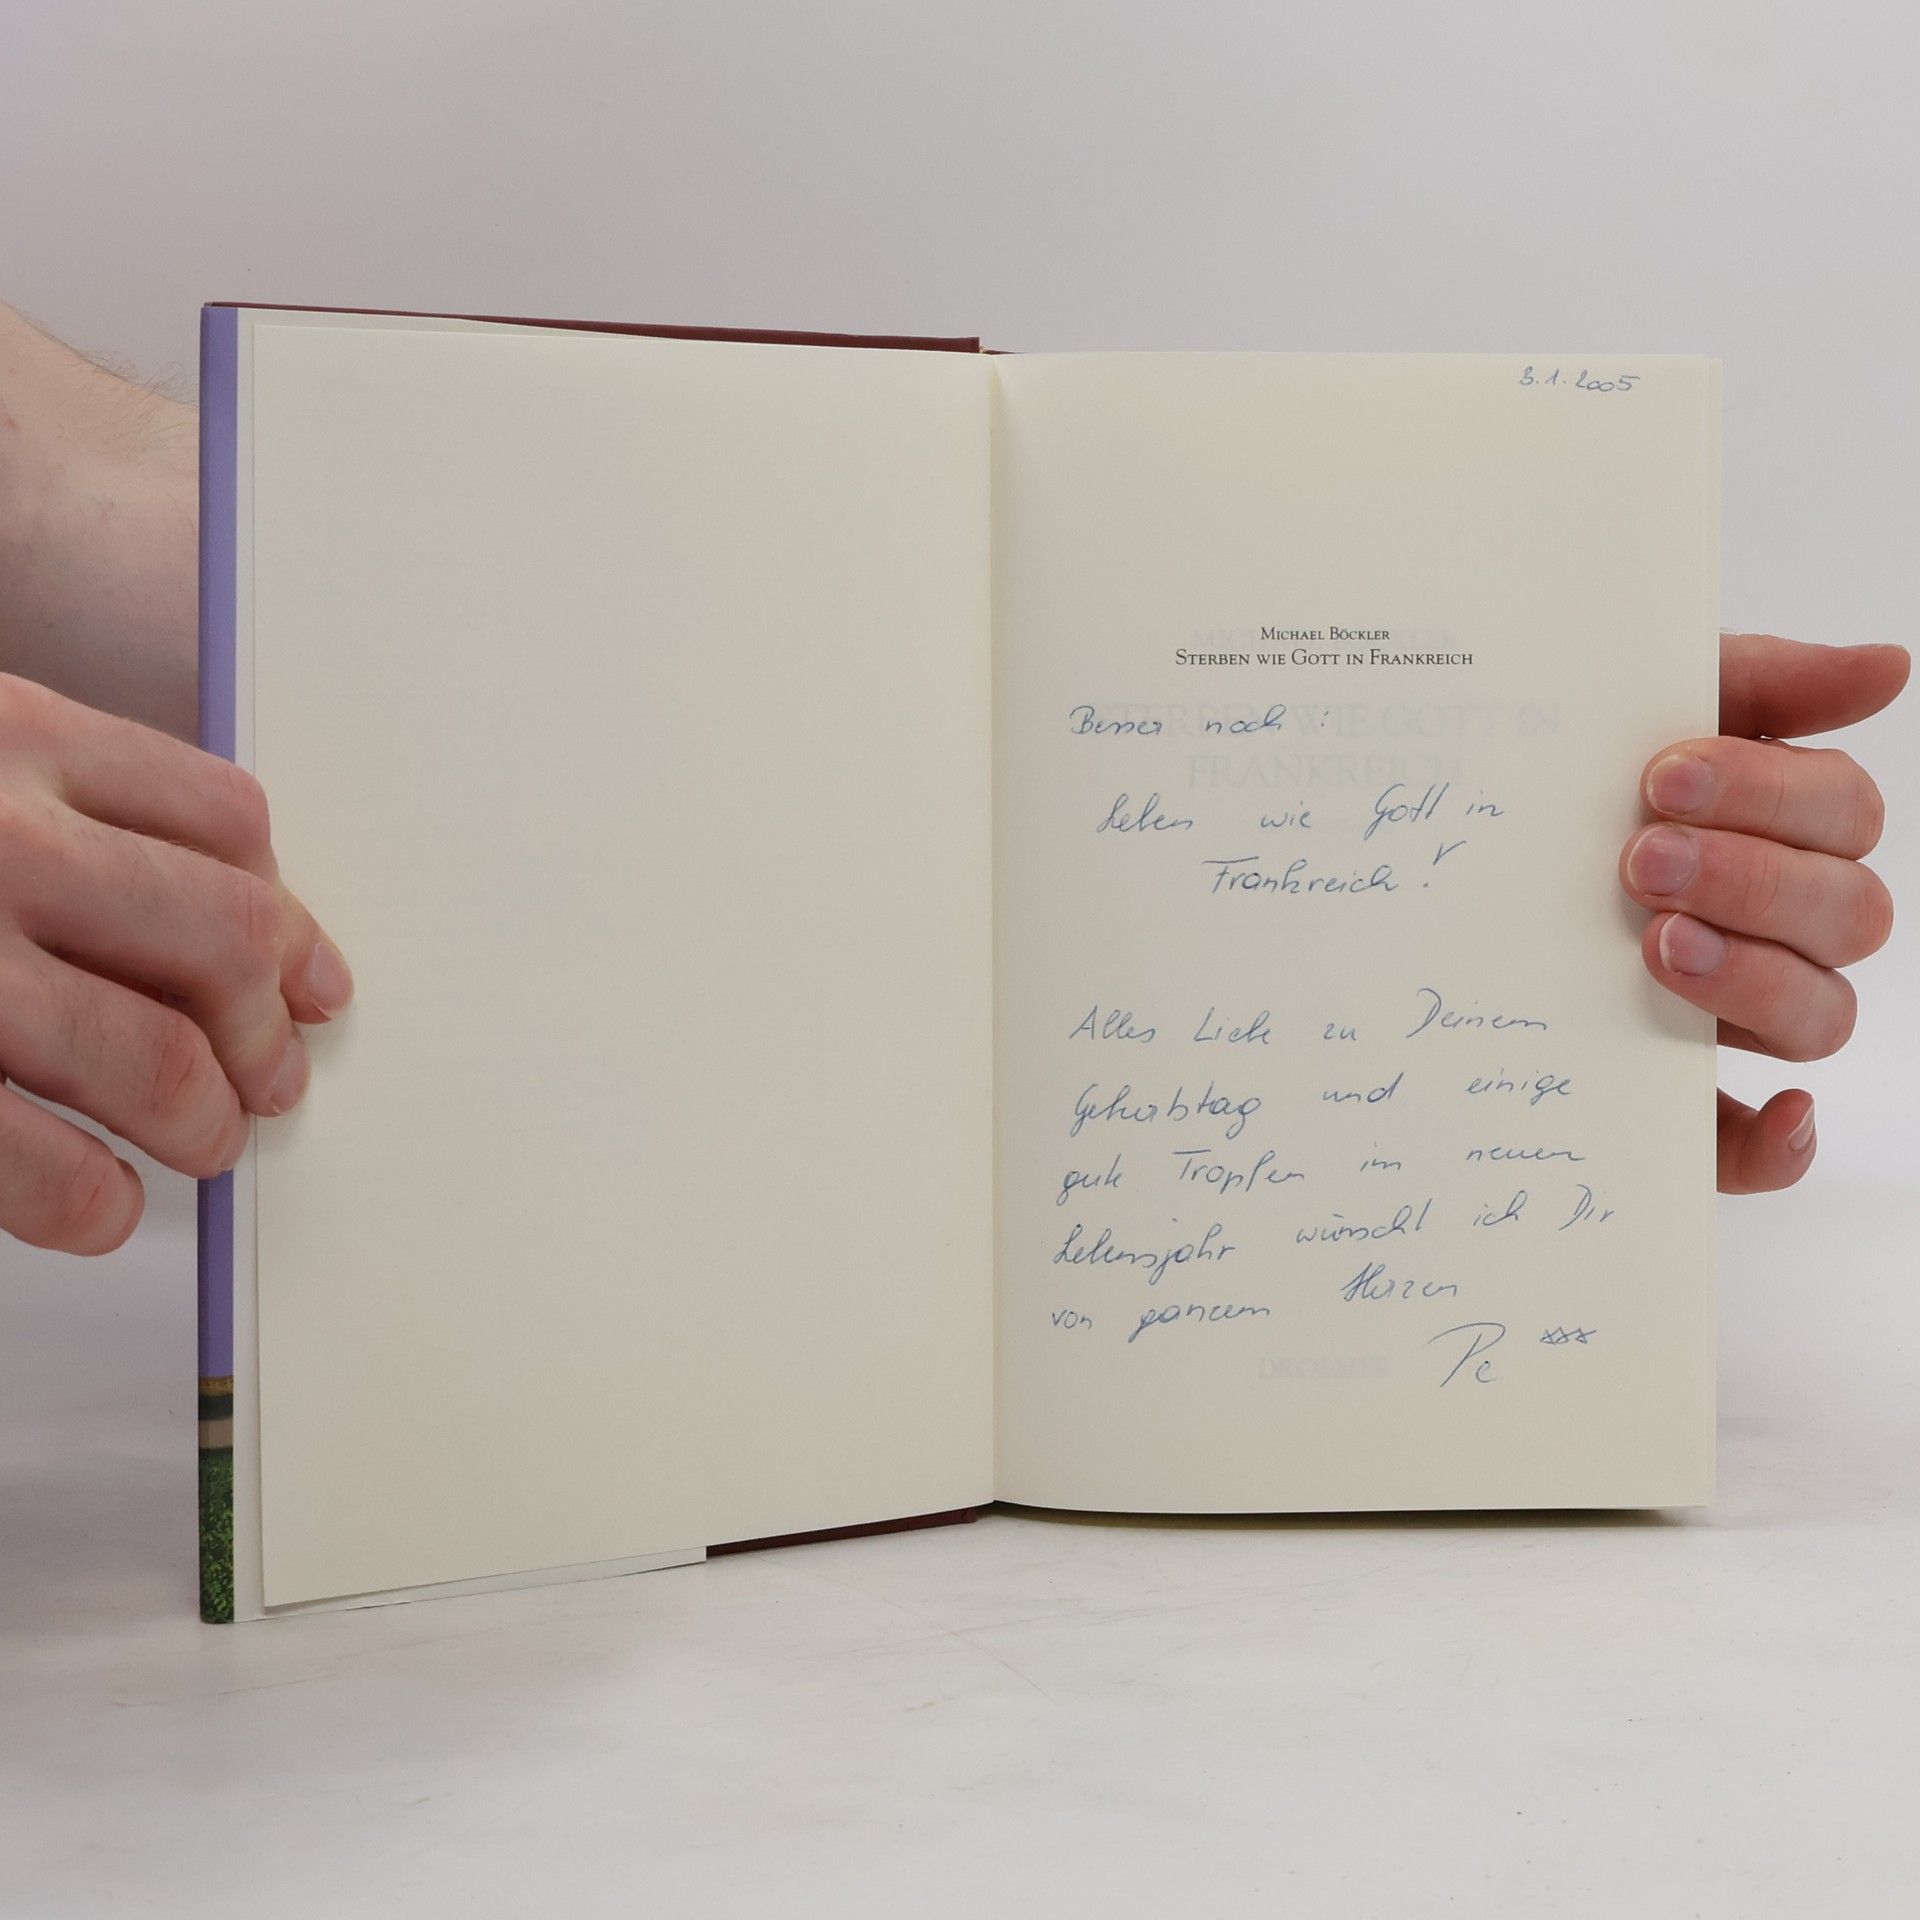 3.1.2005
MICHAEL BÖCKLER
STERBEN WIE GOTT IN FRANKREICH
Besser noch:
Leben wie Gott in
Frankreich!
Alles Liebe zu Deinem
Geburtstag und einige
gute Tropfen im neuen
Lebensjahr wünscht ich Dir
von ganzem Herzen
Pe xxx
STERBEN WIE GOTT IN
FRANKREICH
DROEMER